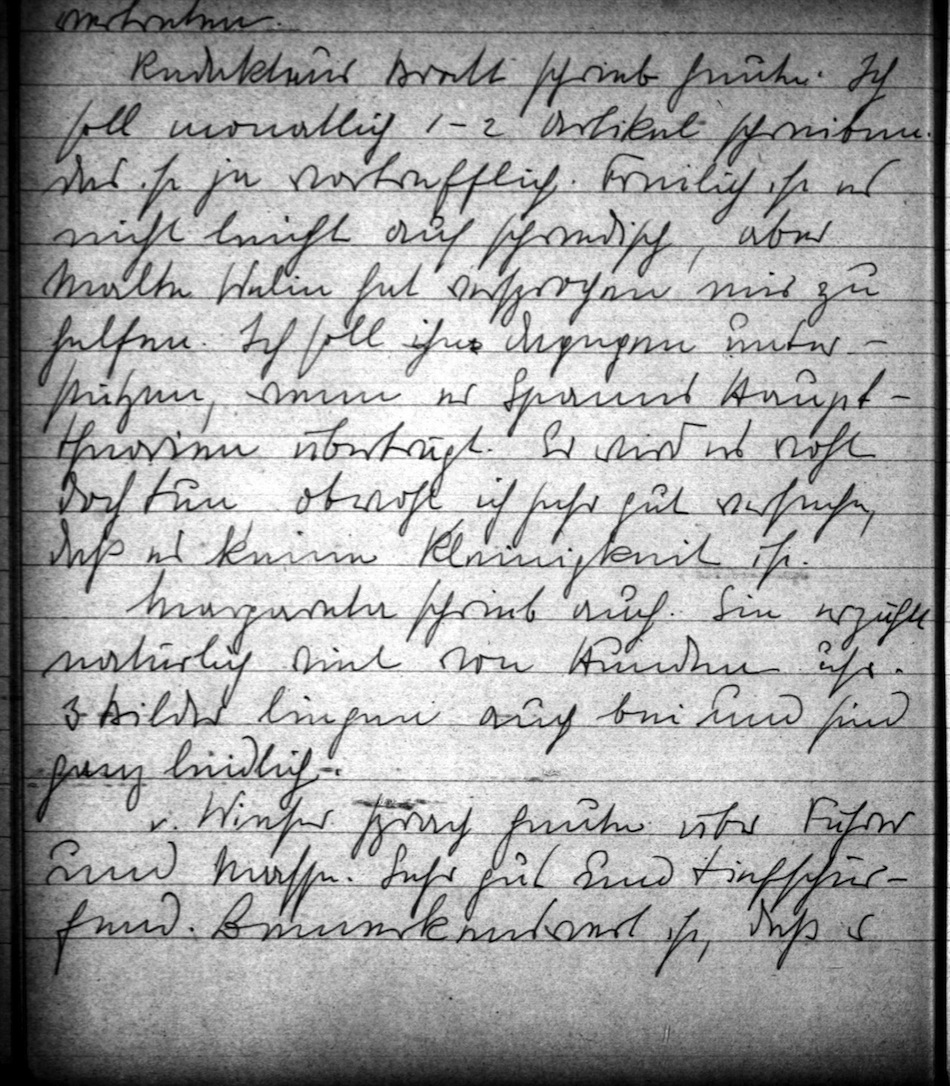 vertreten.
Redakteur Bratt schrieb heute. Ich
soll monatlich 1-2 Artikel schreiben.
Das ist ja vortrefflich. Freilich ist es
nicht leicht auf schwedisch, aber
Malte Welin hat versprochen mir zu
helfen. Ich soll ihn dagegen unter-
stützen, wenn er Spanns Haupt-
theorien überträgt. Er wird es wohl
doch tun obwohl ich sehr gut verstehe,
daß es keine Kleinigkeit ist.
Margareta schrieb auch. Sie erzählt
natürlich viel von Hunden usw.
3 Bilder liegen auch bei und sind
ganz leidlich.
v. Winter sprach heute über Führer
und Masse. Sehr gut und tiefschür-
fend. Bemerkenswert ist, daß er